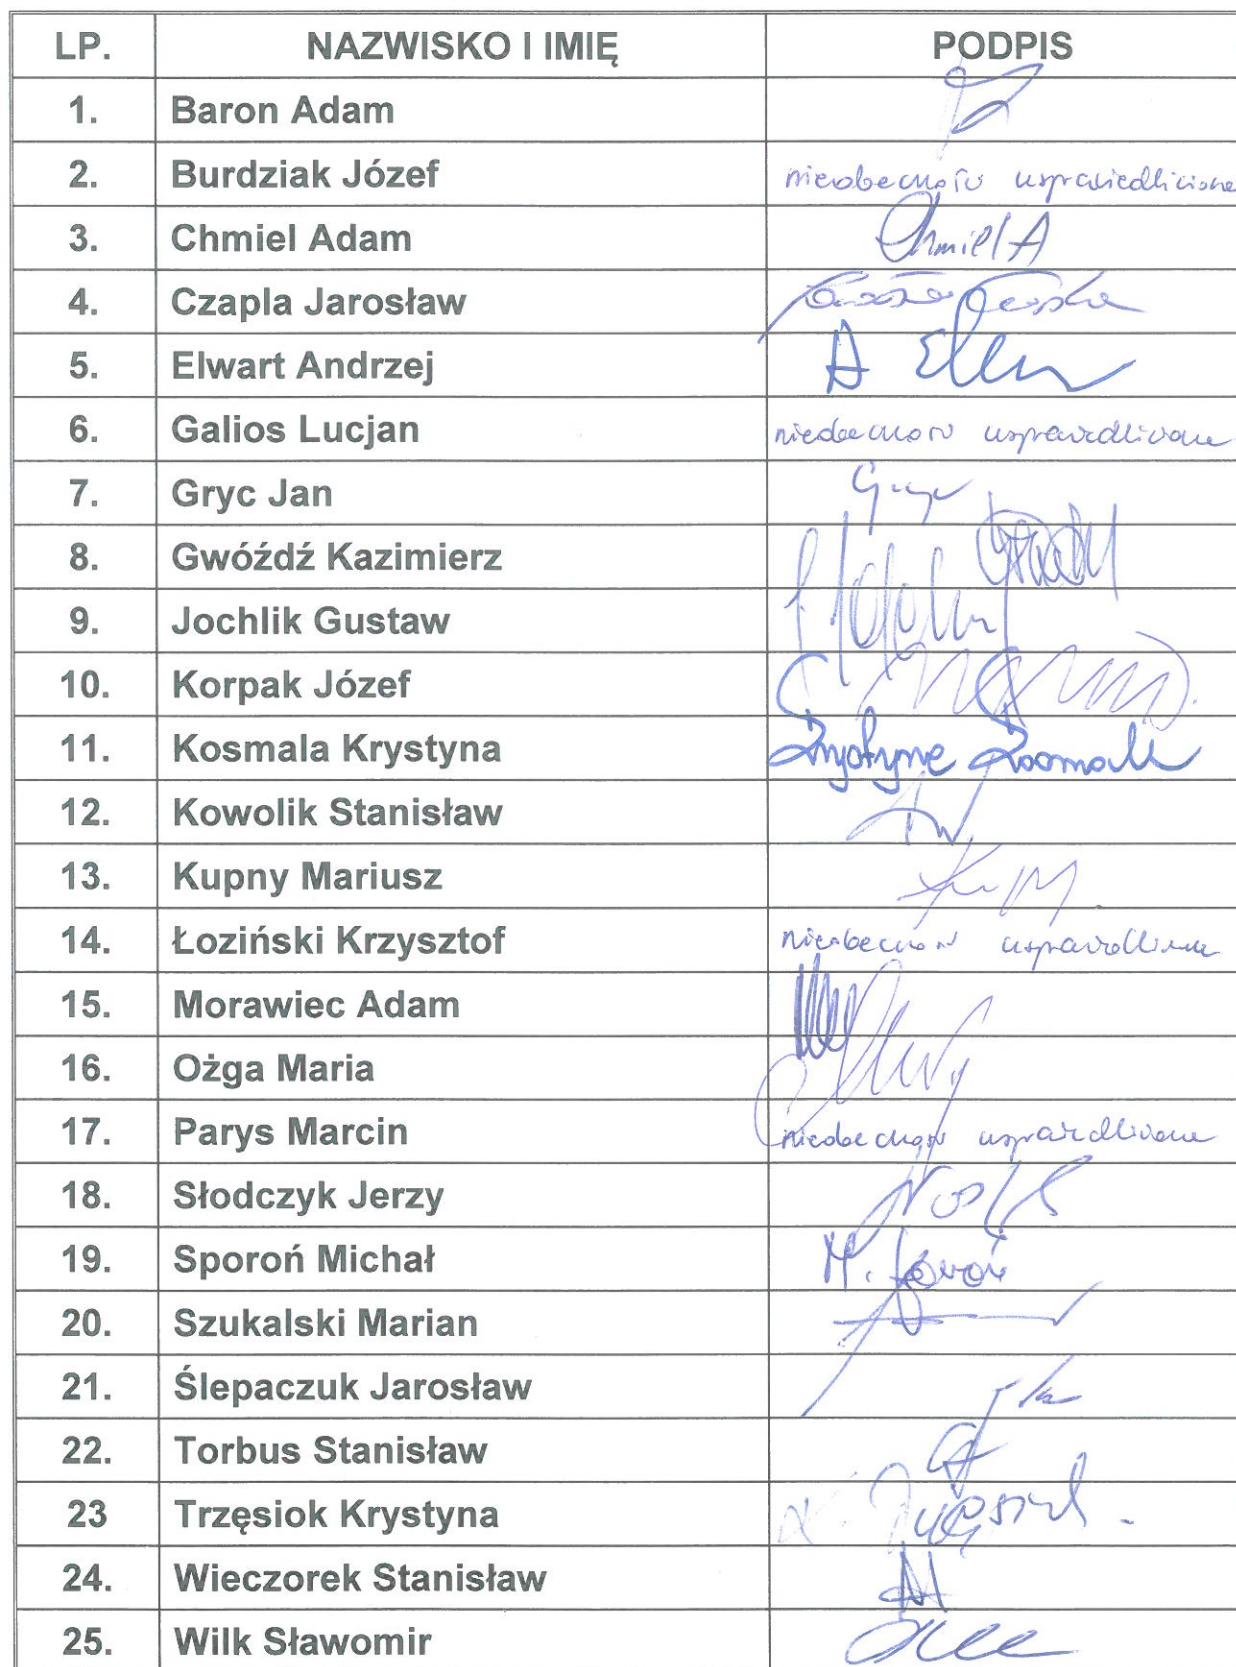 LP. NAZWISKO I IMIĘ PODPIS
1. Baron Adam
2. Burdziak Józef nieobecność usprawiedliwiona
3. Chmiel Adam Chmiel A
4. Czapla Jarosław
5. Elwart Andrzej A
6. Galios Lucjan nieobecność usprawiedliwiona
7. Gryc Jan Gryc
8. Gwóźdź Kazimierz
9. Jochlik Gustaw
10. Korpak Józef
11. Kosmala Krystyna Krystyna Kosmala
12. Kowolik Stanisław
13. Kupny Mariusz
14. Łoziński Krzysztof nieobecność usprawiedliwiona
15. Morawiec Adam
16. Ożga Maria
17. Parys Marcin nieobecność usprawiedliwiona
18. Słodczyk Jerzy
19. Sporoń Michał M. Sporoń
20. Szukalski Marian
21. Ślepaczuk Jarosław
22. Torbus Stanisław
23 Trzęsiok Krystyna
24. Wieczorek Stanisław
25. Wilk Sławomir